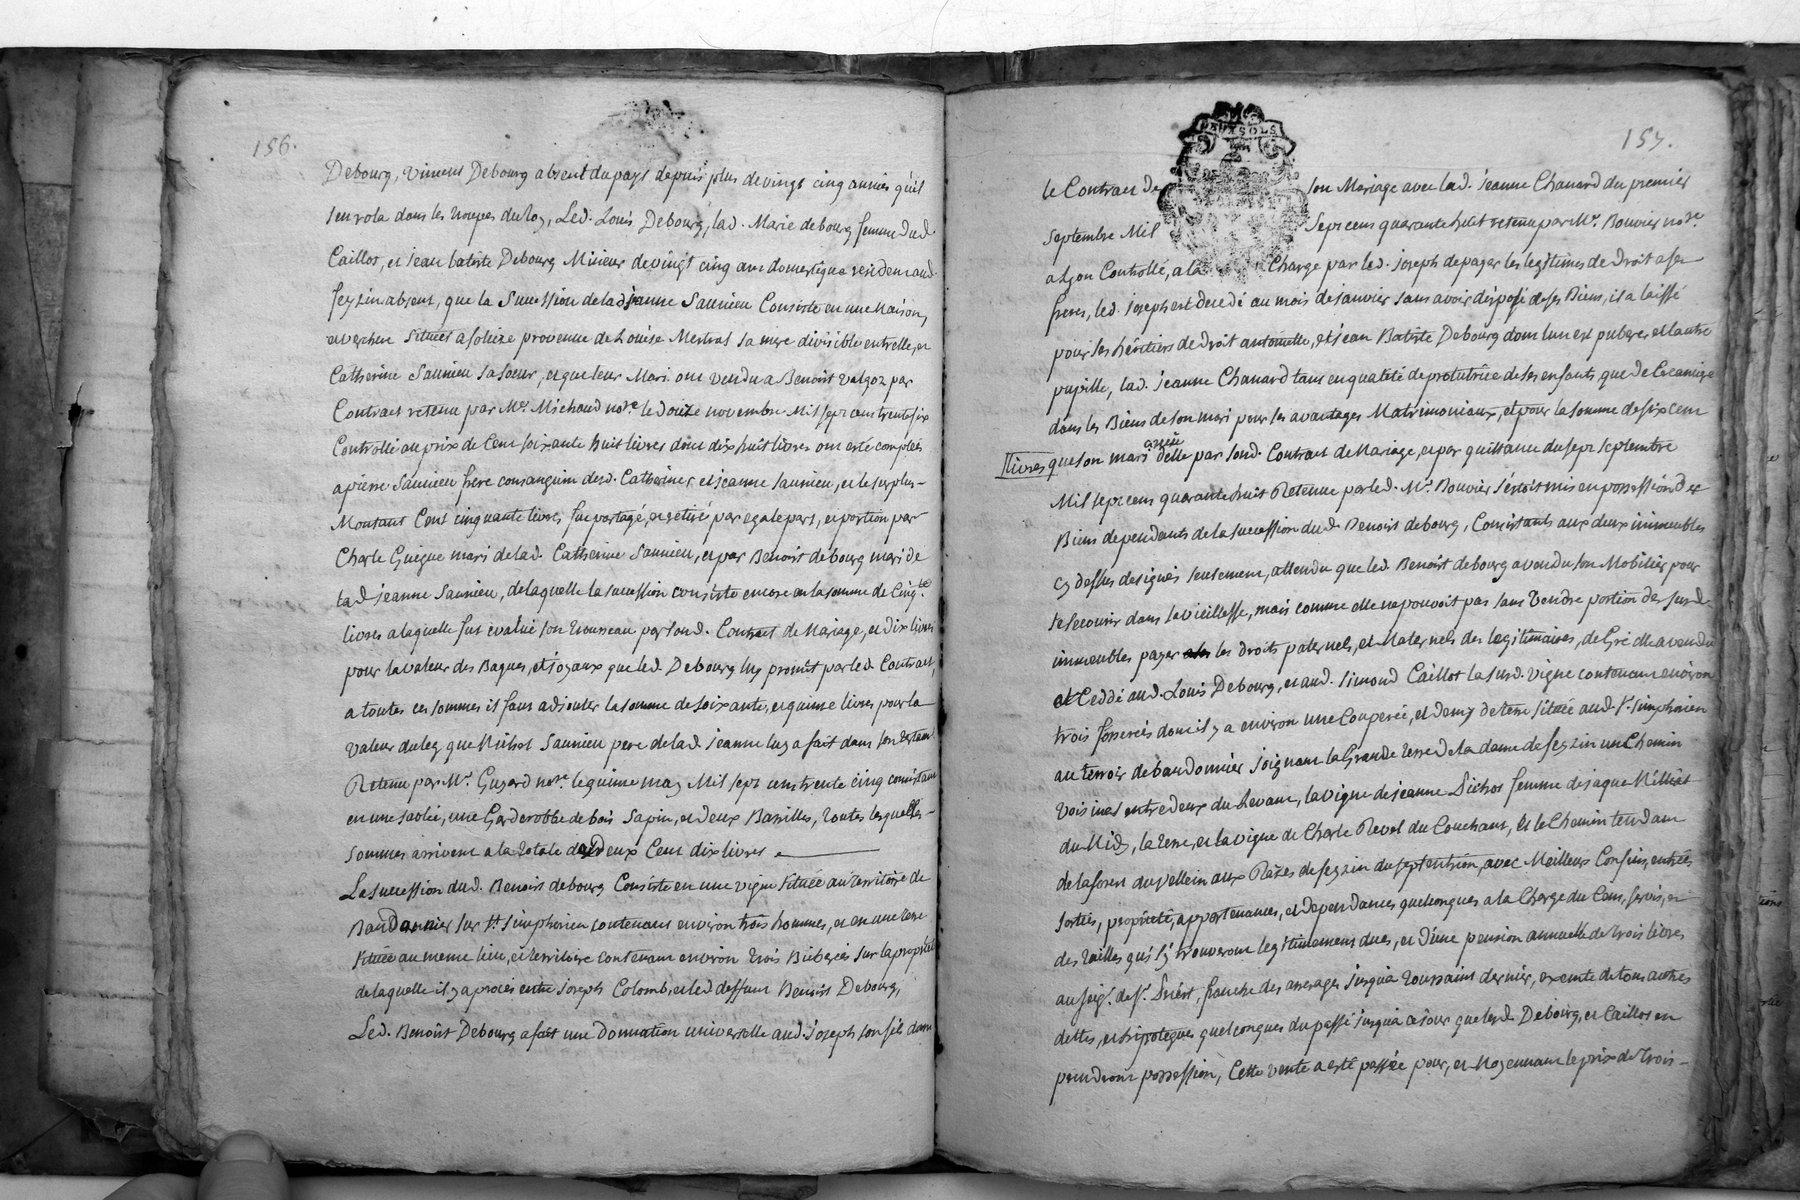 156.
Debourg, Vincent Debourg absent du pays depuis plus de vingt cinq années qu'il
s'en rola dans les troupes du Roy, Led. Louis Debourg, lad. Marie debourg femme dud.
Caillot, et jean batiste Debourg Mineur de vingt cinq ans domestique residant aud.
feyzin absent, que la Succession de lad jeanne Saunieu Consiste en une Maison,
et verchere Situées a solaize provenue de Louise Mestras sa mere divisible entrelle, et
Catherine Saunieu sa soeur, et que leur Mari ont vendu a Benoist Valgoz par
Contract retenu par Me. Michaud nore. le douze novembre Mil sept cens trente six
Controllé au prix de Cent soixante huit livres dont dix huit livres ont esté comptés
a pierre Saunieu frere consanguin desd. Catherine, et jeanne Saunieu, et le surplus-
Montant Cent cinquante livres fut partagé, et retiré par egale part, et portion par
Charle Guigue mari de lad. Catherine Saunieu, et par Benoist debourg mari de
lad jeanne Saunieu, de laquelle la succession consiste encore en la somme de Cinq.te
livres a laquelle fut evalué son trousseau par sond. Contract de Mariage, et dix livres
pour la valeur des Bagues, et joyaux que led. Debourg luy promit par led. Contract,
a toutes ces sommes il faut adjouter la somme de soixante, et quinze livres pour la
valeur du leg que Michel Saunieu pere de lad. jeanne luy a fait dans son testam.
Retenu par Me. Guyard nore. le quinze may Mil sept cens trente cinq consistant
en une sache, une Garderobbe de bois Sapin, et deux Basilles, toutes lesquelles-
sommes arrivent a la totale de Deux Cent dix livres
La succession dud. Benoist debourg Consiste en une vigne Située au territoire de
Baudonnier sur St. Simphorien contenant environ trois hommes, et en une terre
Située au meme lieu, et territoire contenant environ trois Bicherées sur la proprieté
de laquelle il y a procès entre joseph Colomb, et led deffunt Benoist Debourg,
Led. Benoist Debourg a fait une Donnation universelle aud. joseph son fils dans
157.
DEUX SOLS
le Contract de son Mariage avec lad. jeanne Chanard du premier
septembre Mil Sept cens quarante huit retenu par Me. Bouvier nore.
a Lyon Controllé, a la Charge par led. joseph de payer les legitimes de droit a ses
freres, led. joseph est decedé au mois de janvier sans avoir disposé de ses Biens, il a laissé
pour ses héritiers de droit antoinette, et jean Batiste Debourg dont lun est pubere et lautre
pupille, lad. jeanne Chanard tant en qualité de protutrice de ses enfants que de Creanciere
dans les Biens de son mari pour ses avantages Matrimoniaux, et pour la somme de six cent
livres que son mari a reçue delle par sond. Contract de Mariage, et par quittance du sept septembre
Mil sept cens quarante huit Retenue par led. Me. Bouvier s'estoit mis en possession des
Biens dependants de la succession dud. Benoist debourg, Consistants aux deux immeubles
cy dessus designés seulement, attendu que led. Benoist debourg a vendu son Mobilier pour
se secourir dans sa vieillesse, mais comme elle ne pouvoit pas sans vendre portion des susd.
immeubles payer les droits paternels, et Maternels des legitimaires, de Gré elle a vendu
et Ceddé aud. Louis Debourg, et aud. Simond Caillot la susd. vigne contenant environ
trois fosserées dont il y a environ une Couperée, et demy de terre située aud. St. Simphorien
au terroir de baudonnier joignant la Grande terre de la dame de feyzin un Chemin
voisines entre deux du levant, la vigne de jeanne Dichos femme de jaque Milliat
du Midy, la terre, et la vigne de Charle Revol du Couchant, Et le Chemin tendant
de la forest du vellein aux Razes de feyzin du septentrion, avec Meilleurs Confins, entrées
sorties, propriété, appartenances, et dependances quelconques a la Charge du Cens, servis, et
des tailles qui s'y trouveront legitimement dues, et d'une pension annuelle de trois livres
au seigr. de St. Priest, franche des arrerages jusqu'a toussaint dernier, exempte de tous autres
dettes, et hipoteques quelconques du passé jusqu'a ce jour que lesd. Debourg, et Caillot en
prendront possession, Cette vente a esté passée pour, et Moyennant le prix de trois-